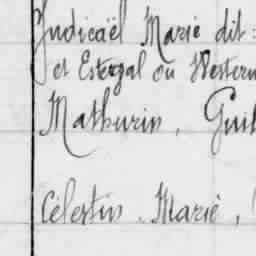 Judicaël Marie dit:
et Estegal ou Western
Mathurin, Guil
Célestin, Marie,